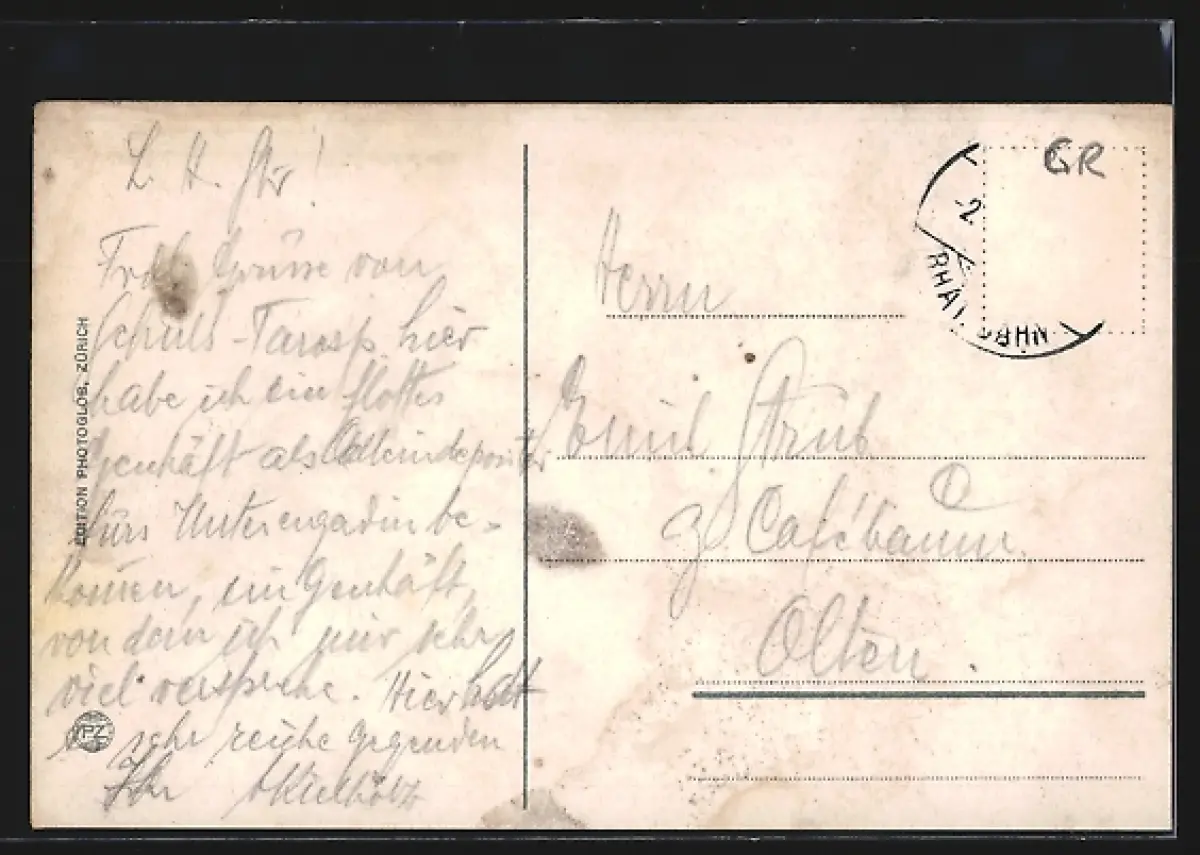 L. H. Str!
Frdl. Grüsse von
Schuls-Tarasp. hier
habe ich ein flottes
Geschäft als
fürs Unterengadin be-
kommen, ein Geschäft,
von dem ich mir sehr
viel verspreche. Hier
sehr reiche Gegenden
Ihr
EDITION PHOTOGLOB, ZÜRICH
PZ
Herrn
Emil Strub
z. Cafébaum
Olten.
GR
2
RHÄT. BAHN